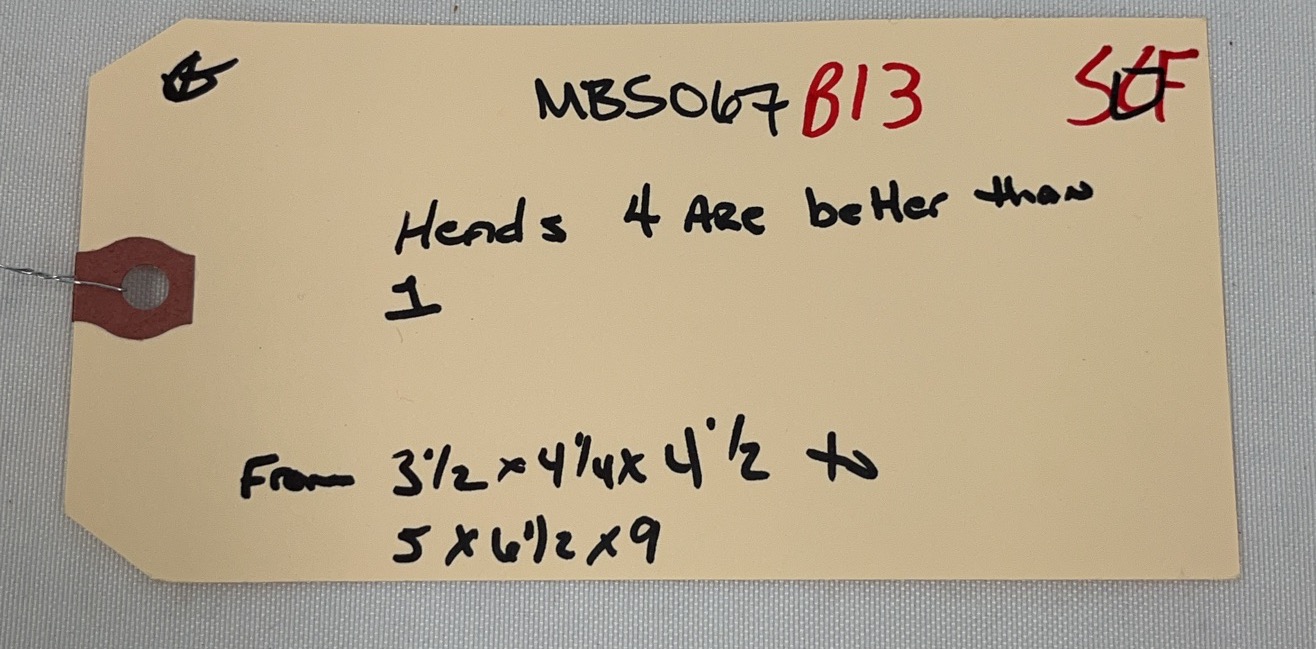 MBS067 B13
Heads 4 Are better than
1
From 3 1/2 x 4 1/4 x 4 1/2 to
5 x 6 1/2 x 9